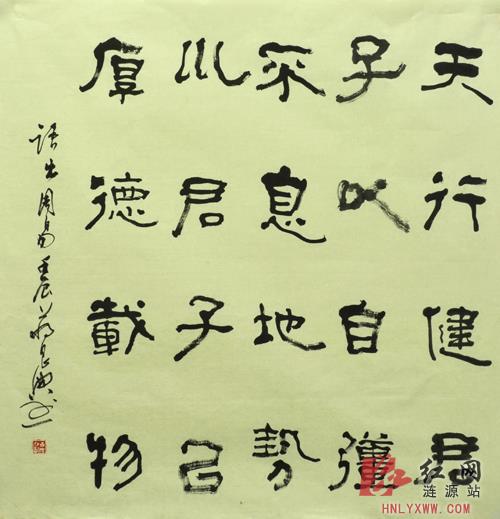 天行健君
子以自彊
不息地勢
川君子㠯
厚德載物
语出周易壬辰
红网
涟源站
HNLYXWW.COM